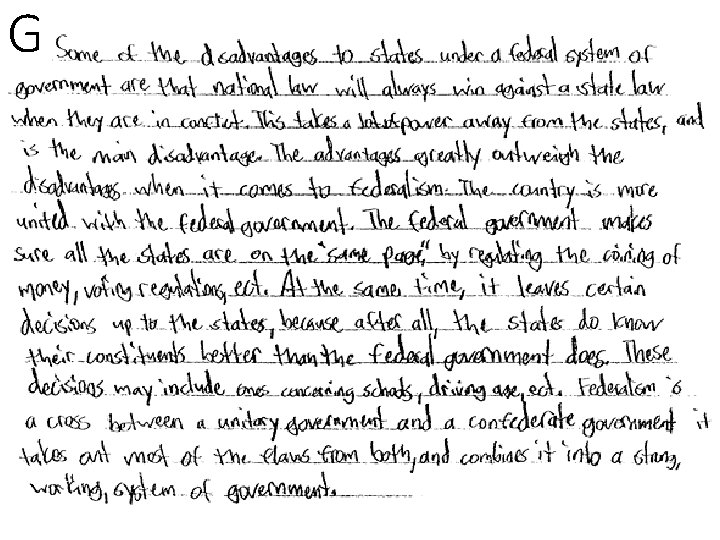 G
Some of the disadvantages to states under a federal system of
government are that national law will always win against a state law
when they are in conflict. This takes a lot of power away from the states, and
is the main disadvantage. The advantages greatly outweigh the
disadvantages when it comes to federalism. The country is more
united with the federal government. The federal government makes
sure all the states are on the "same page," by regulating the coining of
money, voting regulations, ect. At the same time, it leaves certain
decisions up to the states, because after all, the states do know
their constituents better than the federal government does. These
decisions may include ones concerning schools, driving age, ect. Federalism is
a cross between a unitary government and a confederate government it
takes out most of the flaws from both, and combines it into a strong,
working, system of government.